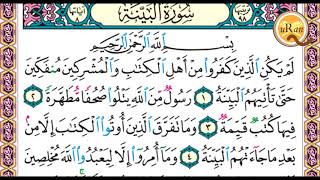 سُورَةُ الْبَيِّنَةِ
بِسْمِ اللَّهِ الرَّحْمَٰنِ الرَّحِيمِ
لَمْ يَكُنِ الَّذِينَ كَفَرُوا مِنْ أَهْلِ الْكِتَابِ وَالْمُشْرِكِينَ مُنْفَكِّينَ
حَتَّىٰ تَأْتِيَهُمُ الْبَيِّنَةُ ١ رَسُولٌ مِنَ اللَّهِ يَتْلُو صُحُفًا مُطَهَّرَةً ٢
فِيهَا كُتُبٌ قَيِّمَةٌ ٣ وَمَا تَفَرَّقَ الَّذِينَ أُوتُوا الْكِتَابَ إِلَّا مِنْ
بَعْدِ مَا جَاءَتْهُمُ الْبَيِّنَةُ ٤ وَمَا أُمِرُوا إِلَّا لِيَعْبُدُوا اللَّهَ مُخْلِصِينَ